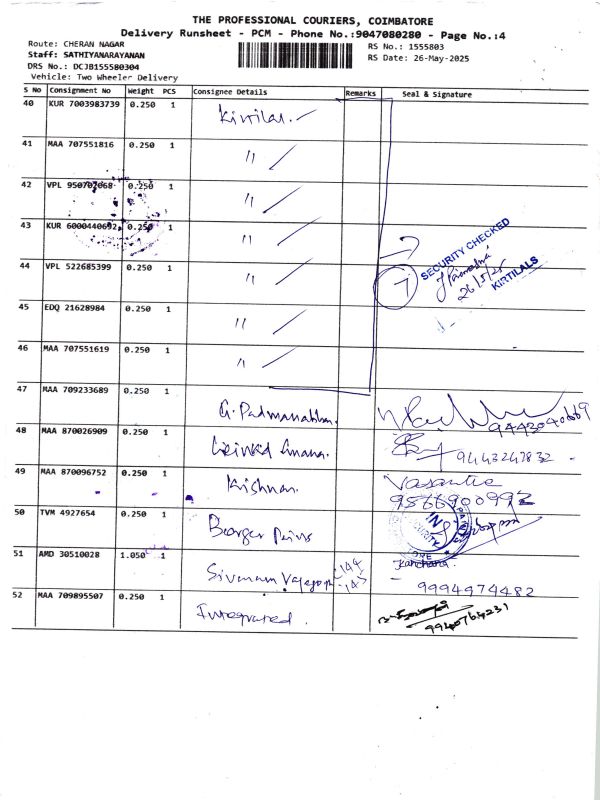 THE PROFESSIONAL COURIERS, COIMBATORE
Delivery Runsheet - PCM - Phone No.:9047080280 - Page No.:4
Route: CHERAN NAGAR
Staff: SATHIYANARAYANAN
DRS No.: DCJB155580304
Vehicle: Two Wheeler Delivery
RS No.: 1555803
RS Date: 26-May-2025
S No Consignment No Weight PCS Consignee Details Remarks Seal & Signature
40 KUR 7003983739 0.250 1 Kirtilas
41 MAA 707551816 0.250 1 "
42 VPL 950702068 0.250 1 "
43 KUR 6000440692 0.250 1 "
SECURITY CHECKED
26/5/25
KIRTILALS
44 VPL 522685399 0.250 1 " 7
45 EDQ 21628984 0.250 1 "
46 MAA 707551619 0.250 1 "
47 MAA 709233689 0.250 1 G. Padmanabhan.
9443040669
48 MAA 870026909 0.250 1
9443247832
49 MAA 870096752 0.250 1 Krishnan. Vasantha
9566900992
50 TVM 4927654 0.250 1 Berger Paints
51 AMD 30510028 1.050 1 Kanchana
9994974482
52 MAA 709895507 0.250 1 Integrated.
9940764231